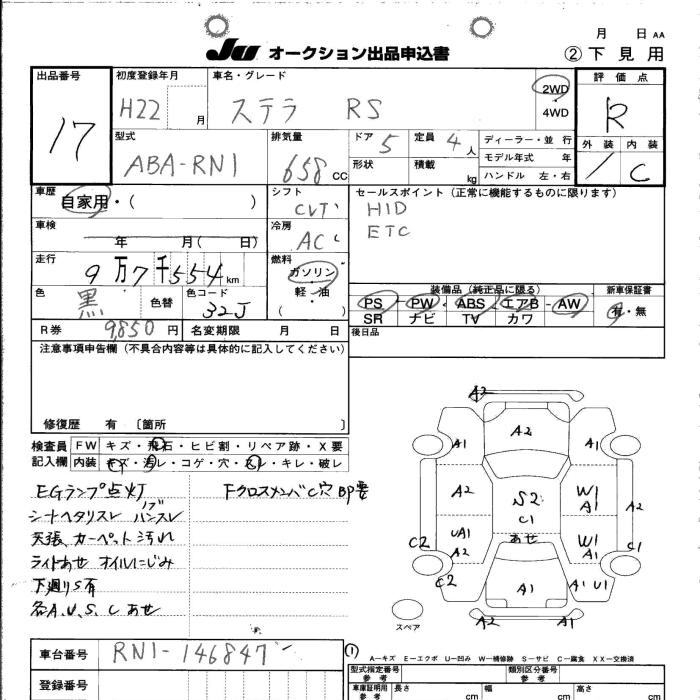 月 日 AA
JU オークション出品申込書 ②下見用
出品番号 初度登録年月 車名・グレード 評価点
17 H22 月 ステラ RS 2WD 4WD R
型式 排気量 ドア 定員 ディーラー・並行 外装 内装
ABA-RN1 658 CC 5 4人 モデル年式 年 / C
形状 積載 kg ハンドル 左・右
車歴 シフト セールスポイント(正常に機能するものに限ります)
自家用・( ) CVT HID
車検 冷房 ETC
年 月( 日) AC
走行 燃料
9万7千554km ガソリン
色 色替 色コード 軽・油 装備品(純正品に限る) 新車保証書
黒 32J ( ) PS PW ABS エアB AW 有・無
SR ナビ TV カワ
R券 9,850円 名変期限 月 日 後日品
注意事項申告欄(不具合内容等は具体的に記入してください)
修復歴 有 〔箇所 〕
検査員 FW キズ・飛石・ヒビ割・リペア跡・X要
記入欄 内装 キズ・汚レ・コゲ・穴・スレ・キレ・破レ
EGランプ点灯 FクロスメンバC穴 BP要
シートヘタリスレ ノブ ハンスレ
天張、カーペット汚れ
ライトあせ オイルにじみ
下廻りS有
各A.U.S.C あせ
A2
A1 A2 A1
A2 S2 W1 A1 A2
C1
UA1 A2 あせ W1 A1
C2 C1
C2 A1 A1 U1
A2 A1
スペア
車台番号 RN1-146847
①
A-キズ E-エクボ U-凹み W-補修跡 S-サビ C-腐食 XX-交換済
型式指定番号 類別区分番号
参考 参考
登録番号 車庫証明用 長さ 幅 高さ
参考 cm cm cm